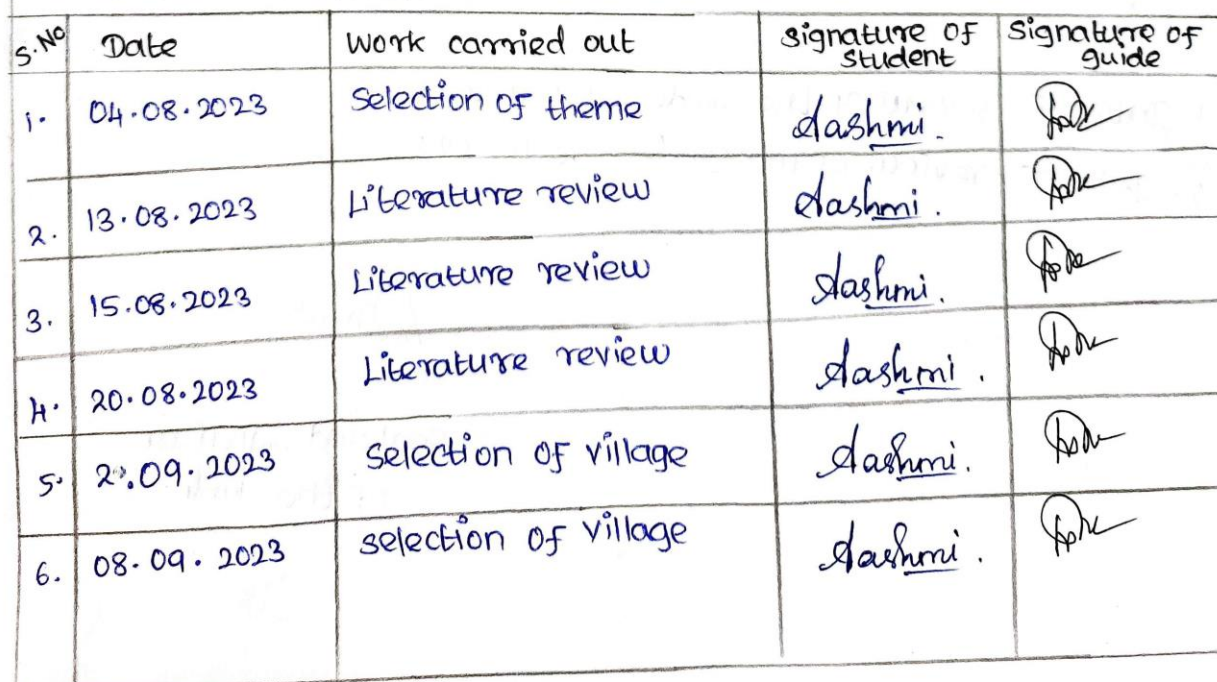 S.No Date Work carried out Signature of student Signature of guide
1. 04.08.2023 Selection of theme Aashmi.
2. 13.08.2023 Literature review Aashmi.
3. 15.08.2023 Literature review Aashmi.
4. 20.08.2023 Literature review Aashmi.
5. .09.2023 Selection of village Aashmi.
6. 08.09.2023 selection of village Aashmi.